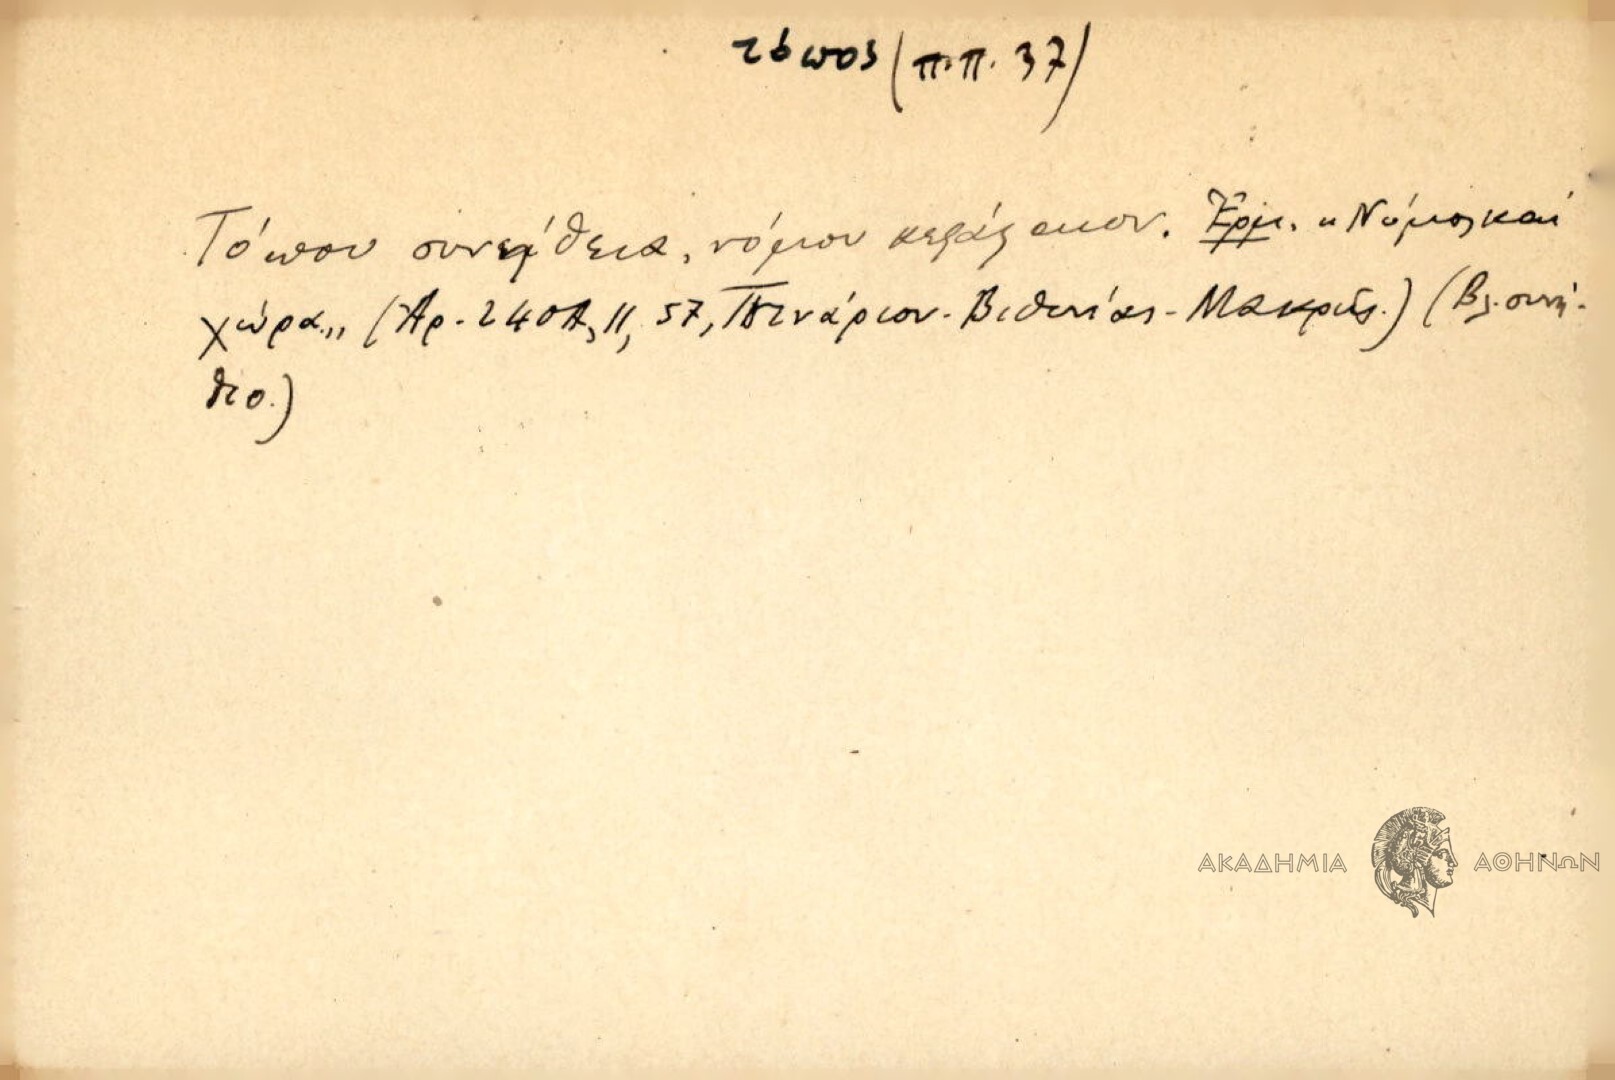 τόπος (π.π. 37)
Τόπου συνήθεια, νόμου κεφάλαιον. Ἑρμ. "Νόμος καὶ
χώρα" (Ἀρ. 240Α, 11, 57, Πινάριον-Βιθυνίας-Μακρῆς.) (Βλ. συνή-
θιο.)
ΑΚΑΔΗΜΙΑ ΑΘΗΝΩΝ